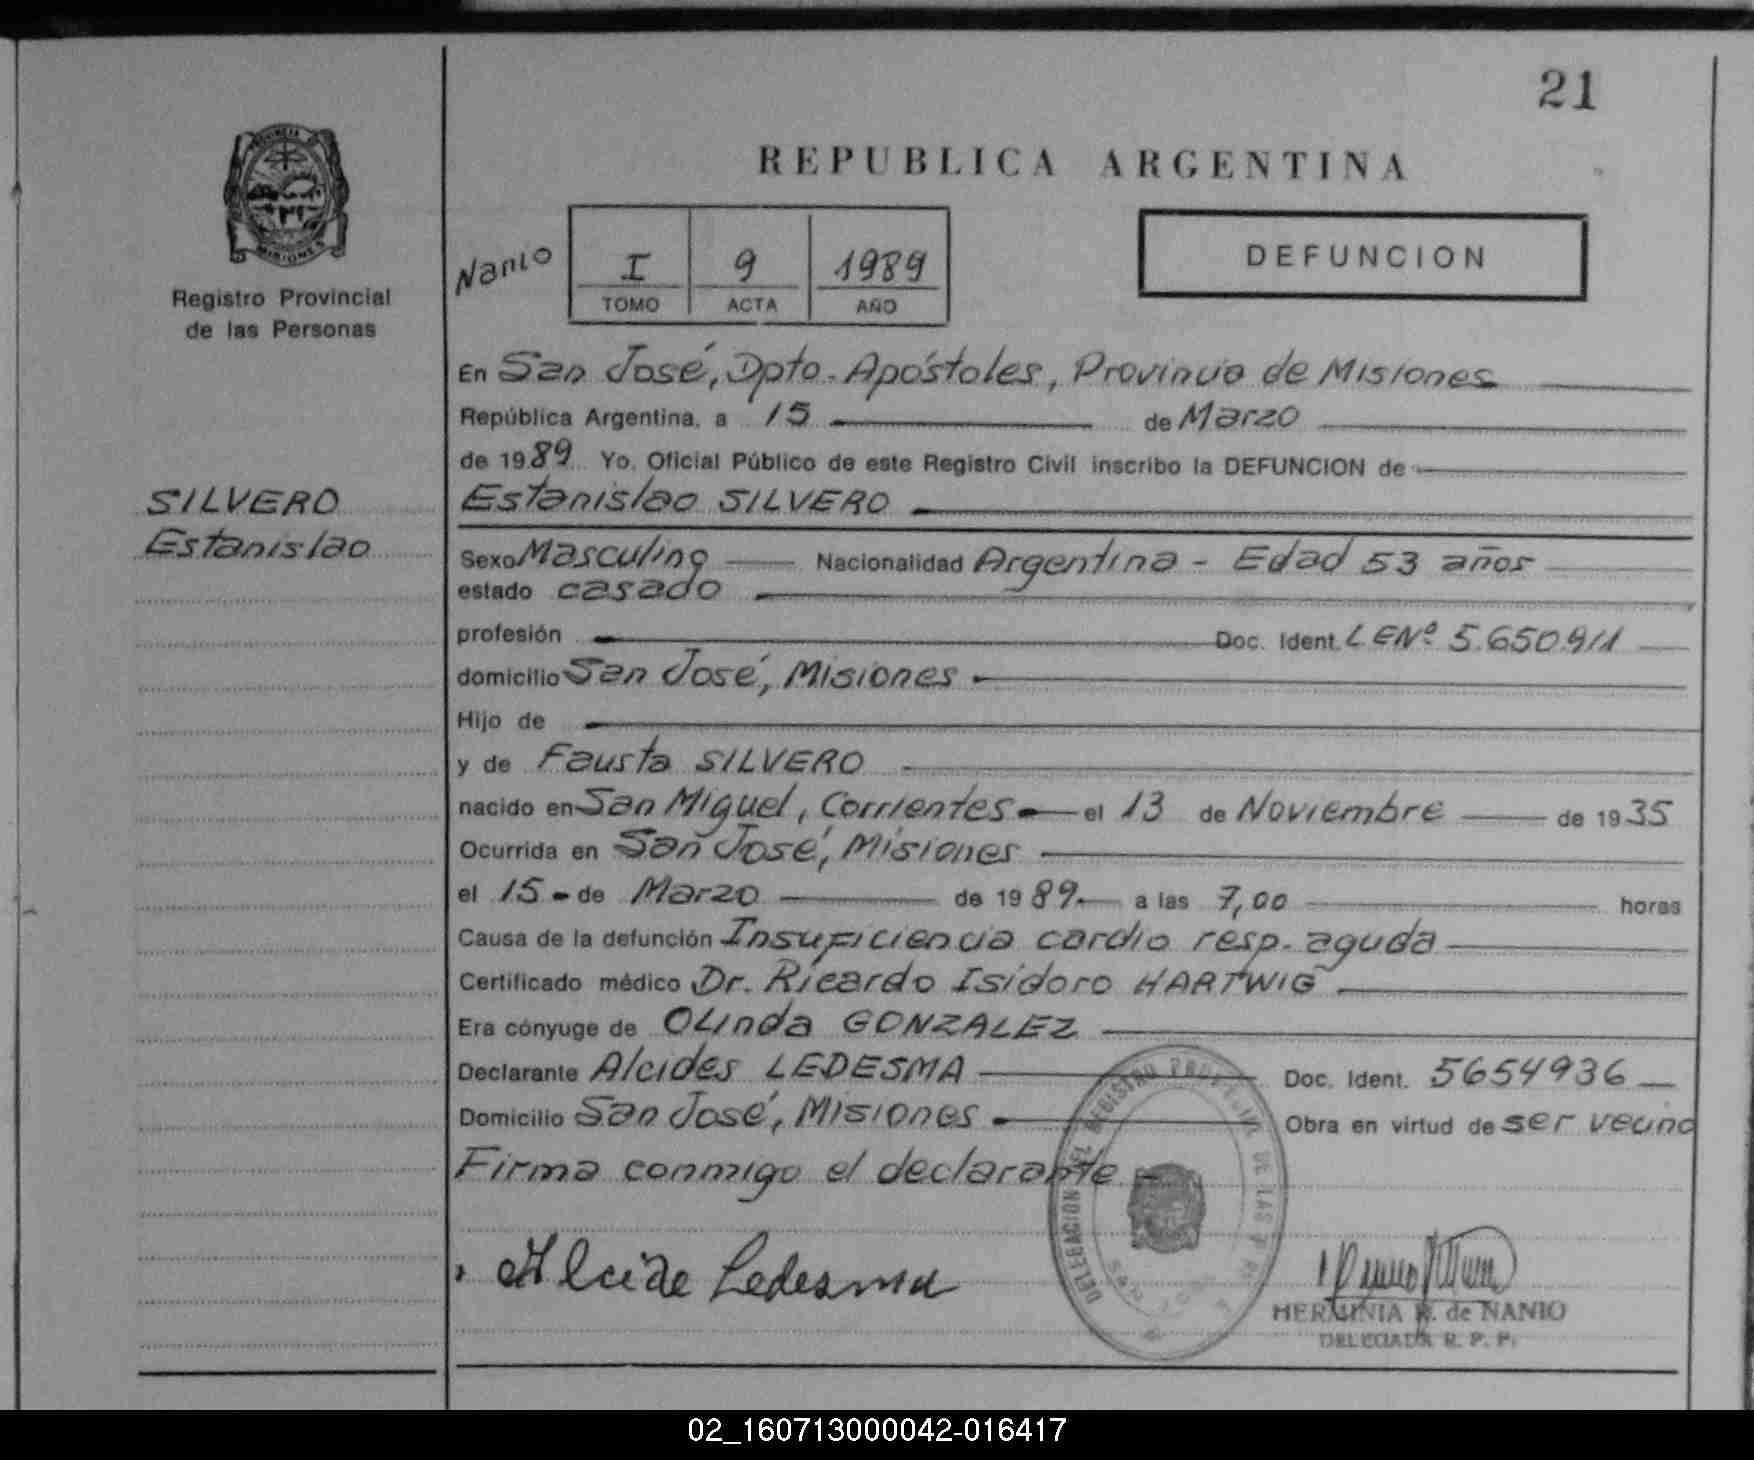 21
REPUBLICA ARGENTINA
PROVINCIA DE
MISIONES
Registro Provincial
de las Personas
Nanio
I 9 1989
TOMO ACTA AÑO
DEFUNCION
En San José, Dpto. Apóstoles, Provincia de Misiones
República Argentina, a 15 de Marzo
de 1989 Yo, Oficial Público de este Registro Civil inscribo la DEFUNCION de
SILVERO
Estanislao
Estanislao SILVERO
Sexo Masculino Nacionalidad Argentina - Edad 53 años
estado casado
profesión Doc. Ident. LENº 5.650.911
domicilio San José, Misiones
Hijo de
y de Fausta SILVERO
nacido en San Miguel, Corrientes el 13 de Noviembre de 1935
Ocurrida en San José, Misiones
el 15 - de Marzo de 1989 a las 7,00 horas
Causa de la defunción Insuficiencia cardio resp. aguda
Certificado médico Dr. Ricardo Isidoro HARTWIG
Era cónyuge de Olinda GONZALEZ
Declarante Alcides LEDESMA Doc. Ident. 5654936
Domicilio San José, Misiones Obra en virtud de ser vecino
Firma conmigo el declarante -
Alcide Ledesma
DELEGACION DEL REGISTRO DE LAS
HERMINIA de NANIO
DELEGADA R. P. P.
02_160713000042-016417